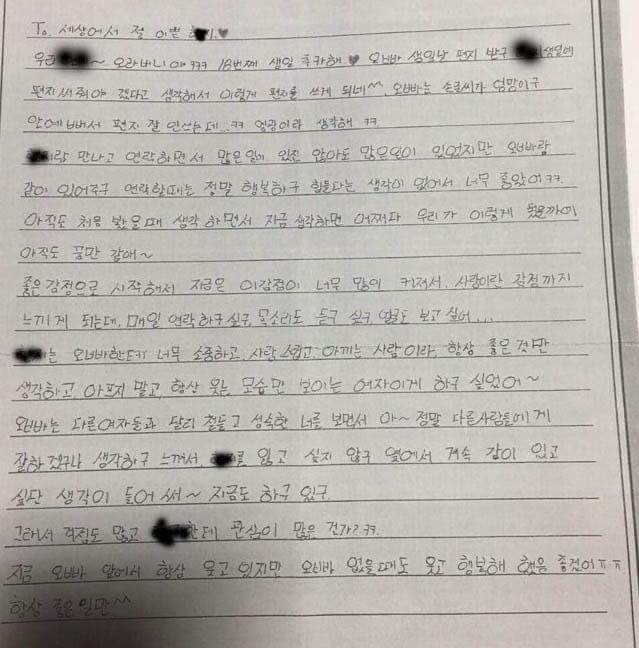 To. 세상에서 젤 이쁜 지.♥
우리 ~ 오라버니야ㅋㅋㅋ 18번째 생일 추카해♥ 오빠바 생일날 편지 받구 생일에
편지써줘야 겠다고 생각해서 이렇게 편지를 쓰게 되네^^ 오빠바는 손글씨가 엉망이구
안에뻐서 편지 잘 안쓰는데..ㅋㅋ 영광이라 생각해 ㅋㅋ
랑 만나고 연락하면서 많은일이 있진 않아도 많은일이 있었지만 오빠바랑
같이 있어주구 연락할때는 정말 행복하구 힘들다는 생각이 없어서 너무 좋았어ㅋㅋ
아직도 처음 봤을때 생각 하면서 지금 생각하면 어쩌다 우리가 이렇게 됬을까이
아직도 꿈만 같애~
좋은감정으로 시작해서 지금은 이감정이 너무 많이 커져서 사랑이란 감정까지
느끼게 되는데, 매일 연락하구 싶구, 목소리도 듣구 싶구, 얼굴도 보고 싶어...
는 오빠바한테 너무 소중하고, 사랑스럽고, 아끼는 사람이라, 항상 좋은것만
생각하고, 아프지 말고, 항상 웃는 모습만 보이는 여자이게 하구 싶었어~
오빠바는 다른여자들과 달리 철들고 성숙한 너를 보면서 아~ 정말 다른사람들에게
잘하겠구나 생각하구 느껴서, 를 잃고 싶지 않구 옆에서 계속 같이 있고
싶단 생각이 들어써~ 지금도 하구 있구
그래서 걱정도 많고 한테 관심이 많은 건가?ㅋㅋ
지금 오빠바 앞에서 항상 웃고 있지만 오빠바 없을때도 웃고 행복해 했음 좋겠어ㅠㅠ
항상 좋은일만^^